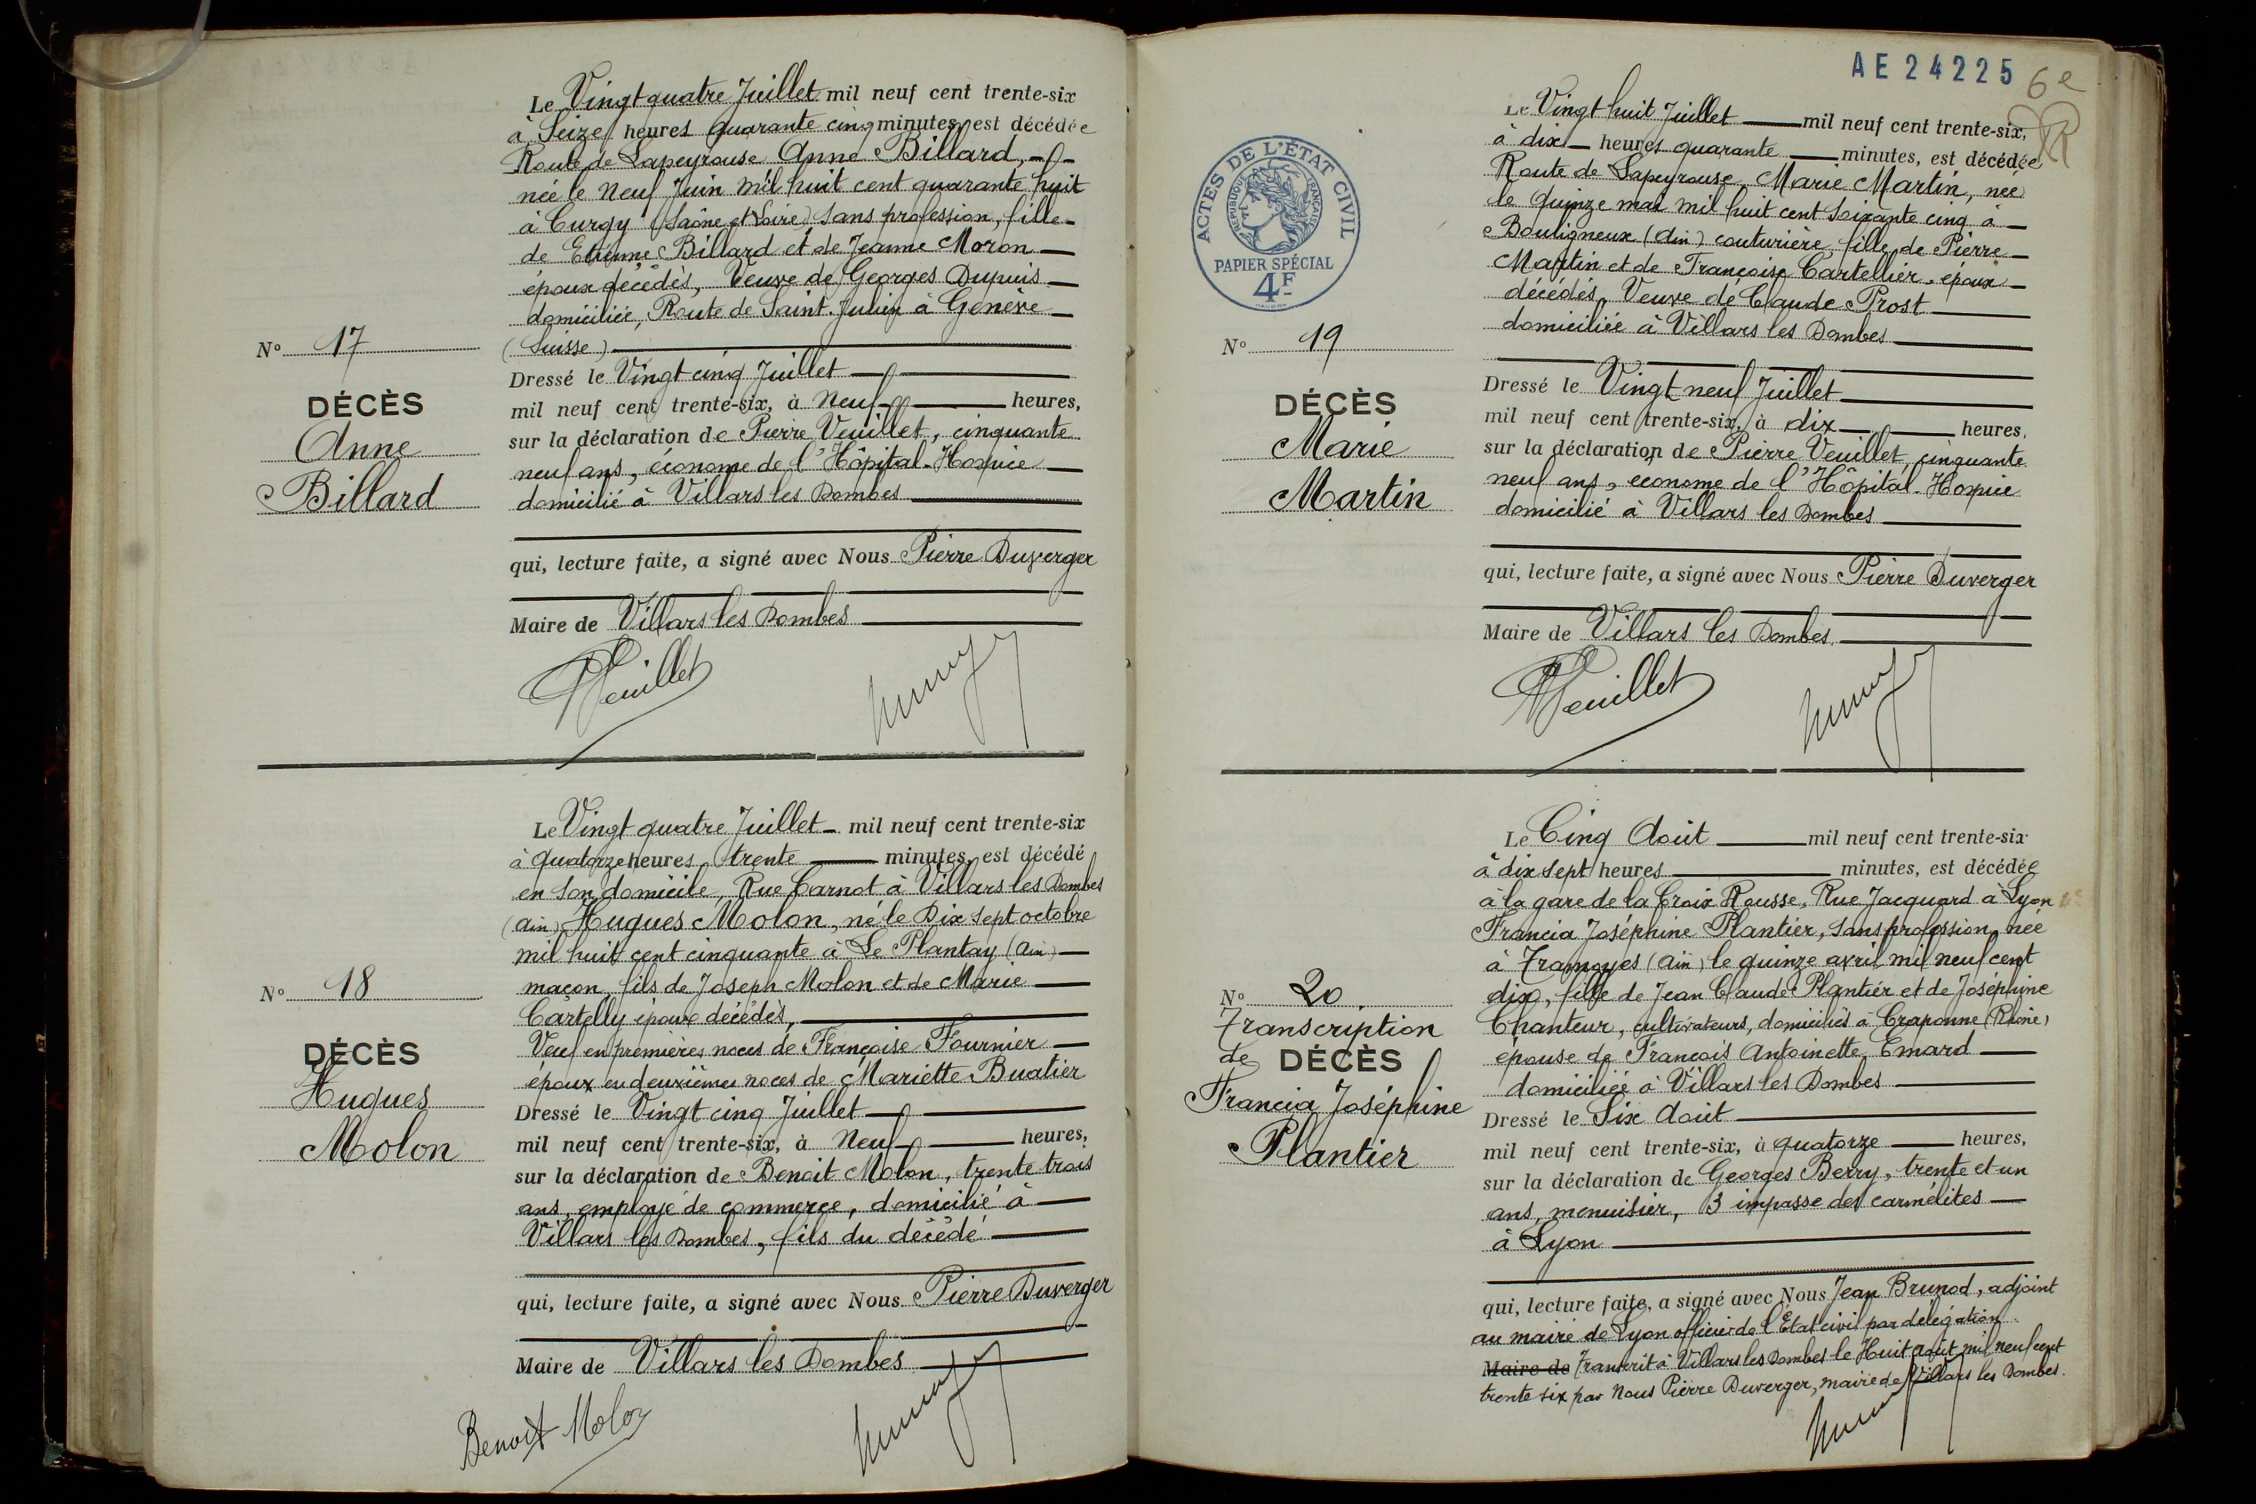 Le Vingt quatre Juillet mil neuf cent trente-six
à Seize heures quarante cinq minutes, est décédée
Route de Lapeyrouse Anne Billard,
née le neuf Juin mil huit cent quarante huit
à Curgy (Saône et Loire) sans profession, fille
de Etienne Billard et de Jeanne Moron
époux décédés, Veuve de Georges Dupuis
domiciliée, Route de Saint-Julien à Genève
(Suisse)
Dressé le Vingt cinq Juillet
mil neuf cent trente-six, à Neuf heures,
sur la déclaration de Pierre Veuillet, cinquante
neuf ans, économe de l'Hôpital-Hospice
domicilié à Villars les Dombes
qui, lecture faite, a signé avec Nous Pierre Duverger
Maire de Villars les Dombes
N° 17
DÉCÈS
Anne
Billard
PVeuillet
Le Vingt quatre Juillet mil neuf cent trente-six
à quatorze heures trente minutes, est décédé
en son domicile, Rue Carnot à Villars les Dombes
(Ain) Hugues Molon, né le Dix sept octobre
mil huit cent cinquante à Le Plantay (Ain)
maçon, fils de Joseph Molon et de Marie
Cartelly époux décédés,
Veuf en premières noces de Françoise Fournier
époux en deuxièmes noces de Mariette Buatier
Dressé le Vingt cinq Juillet
mil neuf cent trente-six, à Neuf heures,
sur la déclaration de Benoit Molon, trente trois
ans, employé de commerce, domicilié à
Villars les Dombes, fils du décédé
qui, lecture faite, a signé avec Nous Pierre Duverger
Maire de Villars les Dombes
N° 18
DÉCÈS
Hugues
Molon
Benoit Molon
AE24225
6e
ACTES DE L'ÉTAT CIVIL
RÉPUBLIQUE FRANÇAISE
PAPIER SPÉCIAL
4F
Le Vingt huit Juillet mil neuf cent trente-six,
à dix heures quarante minutes, est décédée
Route de Lapeyrouse, Marie Martin, née
le quinze mai mil huit cent soixante cinq à
Bouligneux (Ain) couturière, fille de Pierre
Martin et de Françoise Cartellier, époux
décédés, Veuve de Claude Prost
domiciliée à Villars les Dombes
Dressé le Vingt neuf Juillet
mil neuf cent trente-six, à dix heures,
sur la déclaration de Pierre Veuillet, cinquante
neuf ans, économe de l'Hôpital-Hospice
domicilié à Villars les Dombes
qui, lecture faite, a signé avec Nous Pierre Duverger
Maire de Villars les Dombes
N° 19
DÉCÈS
Marie
Martin
PVeuillet
Le Cinq Août mil neuf cent trente-six
à dix sept heures minutes, est décédée
à la gare de la Croix Rousse, Rue Jacquard à Lyon
Francia Joséphine Plantier, sans profession, née
à Tramoyes (Ain) le quinze avril mil neuf cent
dix, fille de Jean Claude Plantier et de Joséphine
Chanteur, cultivateurs, domiciliés à Craponne (Rhône)
épouse de François Antoinette Emard
domiciliée à Villars les Dombes
Dressé le Six Août
mil neuf cent trente-six, à quatorze heures,
sur la déclaration de Georges Berry, trente et un
ans, menuisier, 3 impasse des carmélites
à Lyon
qui, lecture faite, a signé avec Nous Jean Brunod, adjoint
au maire de Lyon officier de l'Etat civil par délégation.
Maire de Transcrit à Villars les Dombes le Huit août mil neuf cent
trente six par Nous Pierre Duverger, maire de Villars les Dombes.
N° 20.
Transcription
de DÉCÈS
Francia Joséphine
Plantier